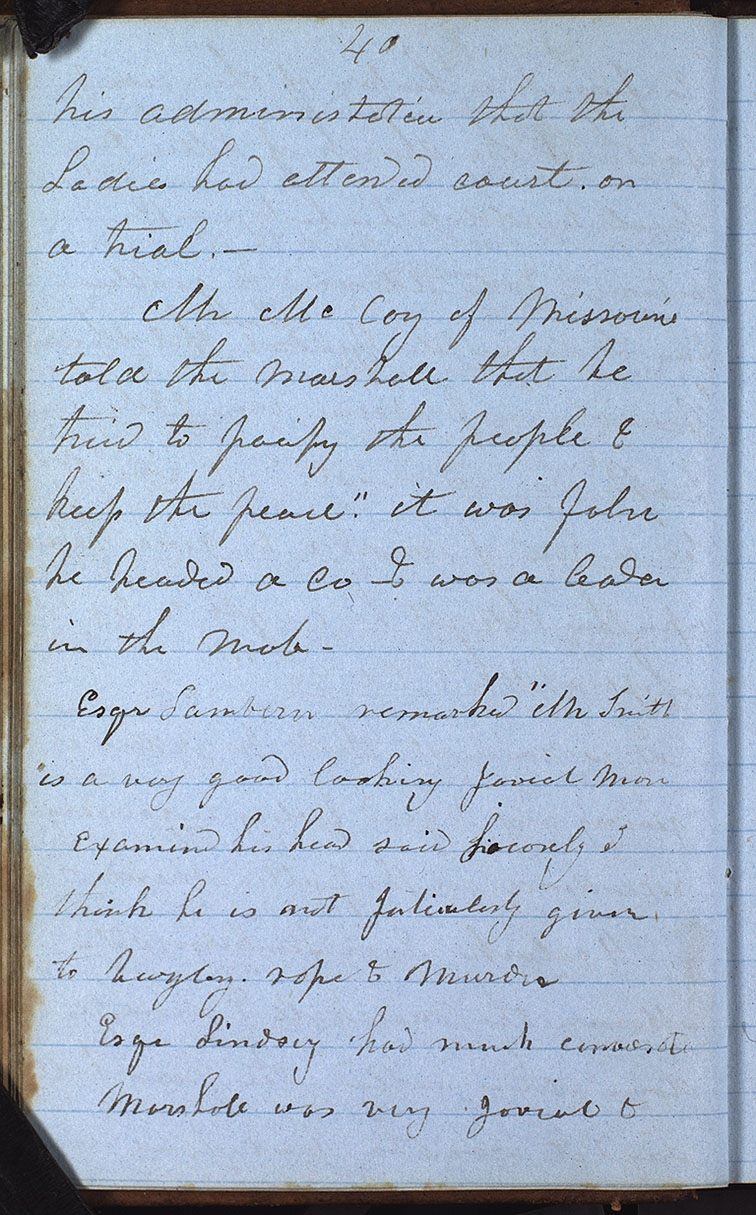 40
his administration that the
Ladies had attended court. on
a trial.—
Mr Mc Coy of Missourie
told the Marshall that he
tried to pacify the people &
keep the peace". it was John
he headed a Co & was a leader
in the Mob -
Esqr Lamborn remarked "Mr Smith
is a very good looking Jovial Man
examined his head said I
think he is not given
to rape & Murder
Esqr Lindsey had much conversat
Marshall was very Jovial &